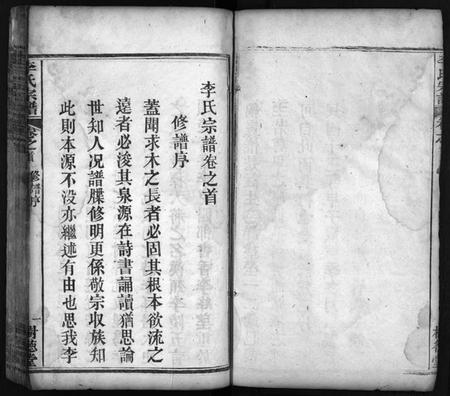 李氏宗譜卷之首
修譜序
蓋聞求木之長者必固其根本欲流之
遠者必浚其泉源在詩書誦讀猶思論
世知人况譜牒修明更係敬宗収族知
此則本源不没亦繼述有由也思我李
李氏宗譜
卷之首
修譜序
一
樹德堂